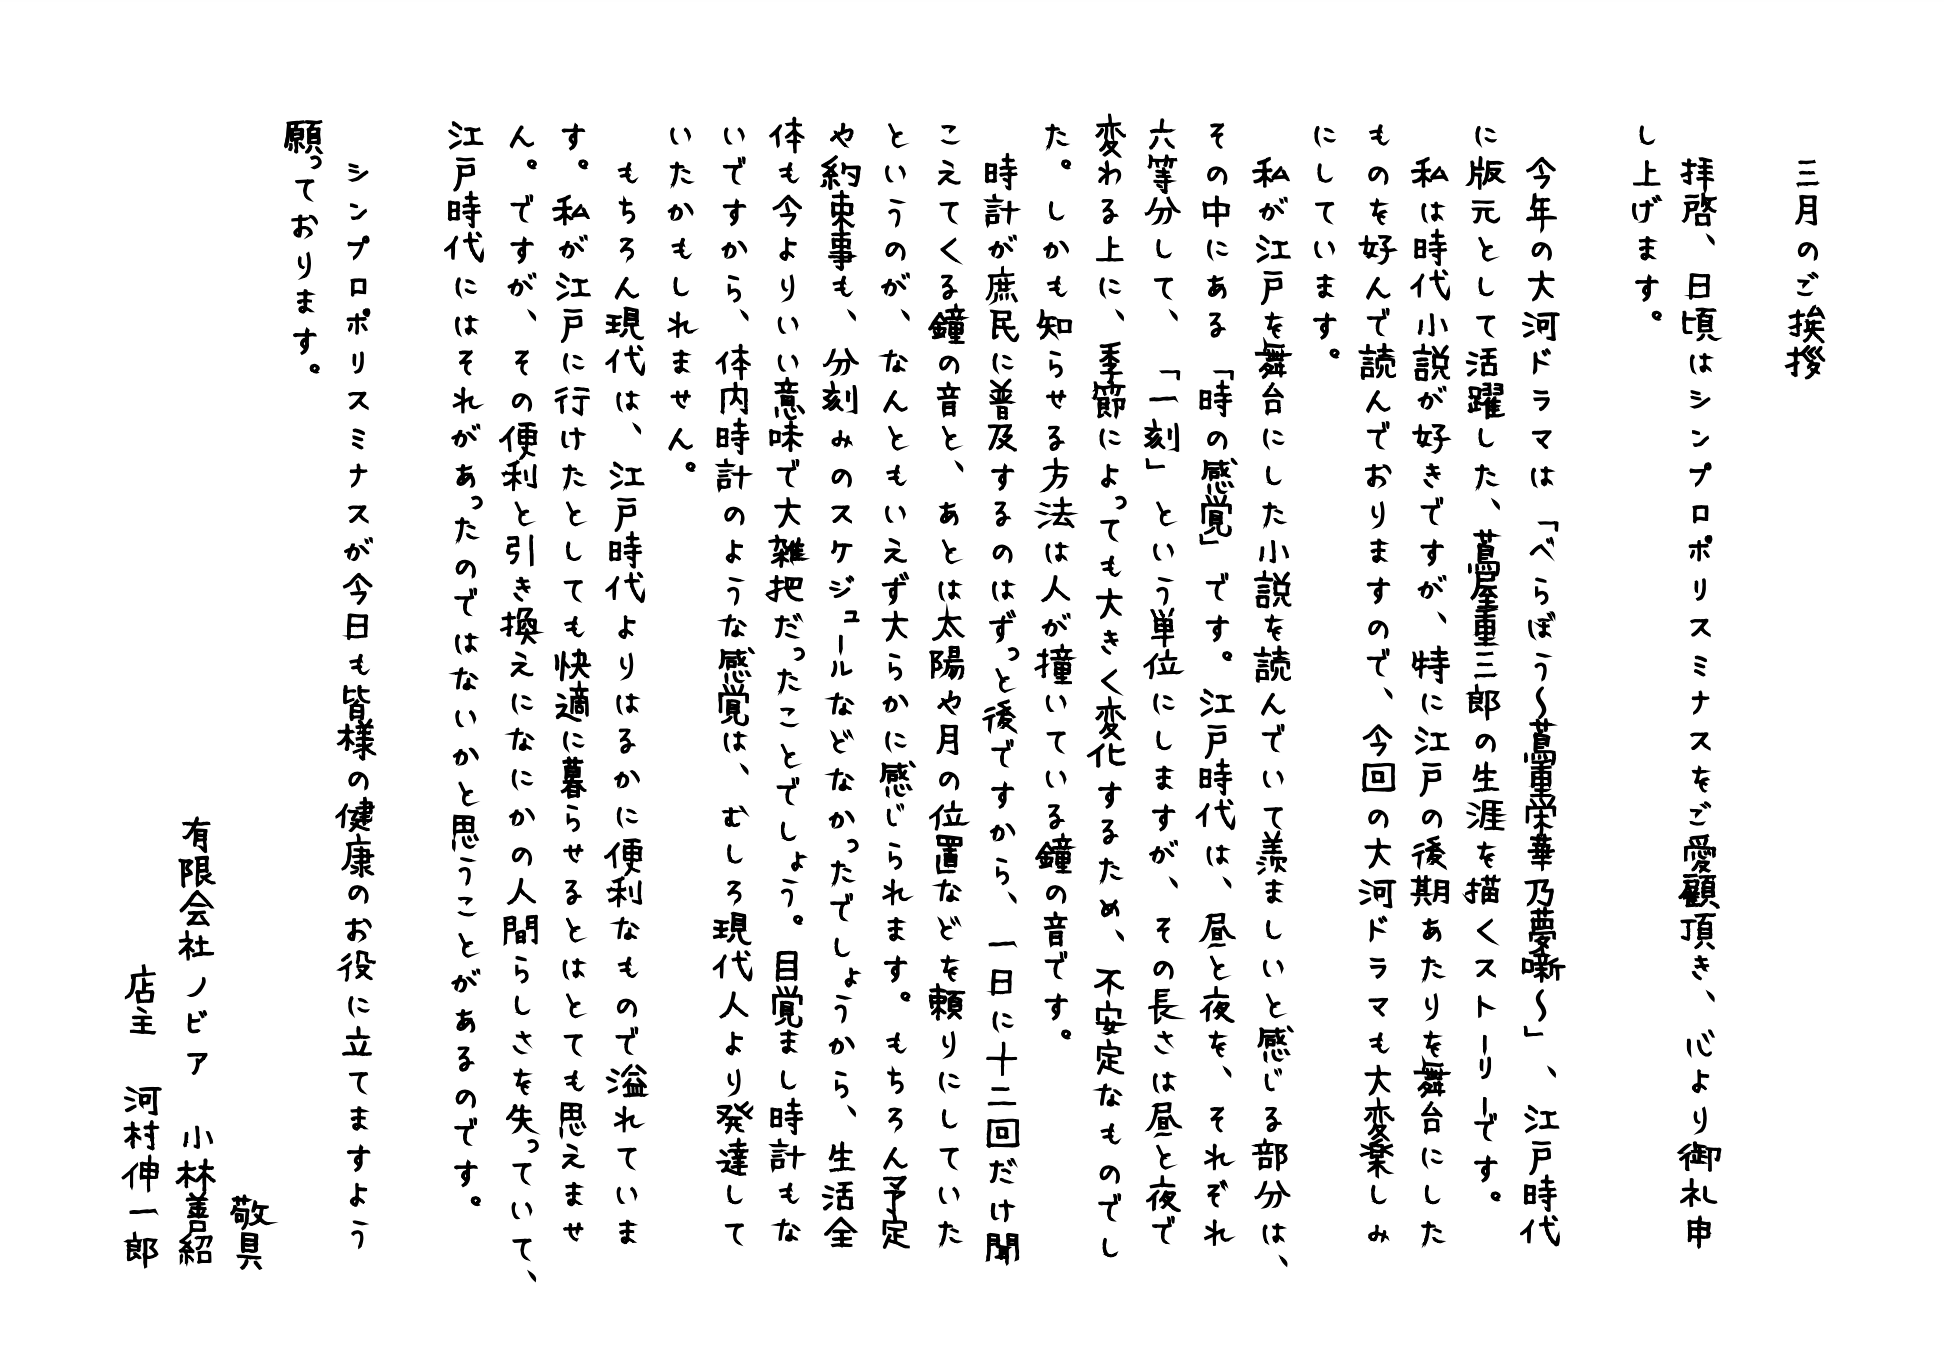 三月のご挨拶
拝啓、日頃はシンプロポリスミナスをご愛顧頂き、心より御礼申
し上げます。
今年の大河ドラマは「べらぼう～蔦重栄華乃夢噺～」、江戸時代
に版元として活躍した、蔦屋重三郎の生涯を描くストーリーです。
私は時代小説が好きですが、特に江戸の後期あたりを舞台にした
ものを好んで読んでおりますので、今回の大河ドラマも大変楽しみ
にしています。
私が江戸を舞台にした小説を読んでいて羨ましいと感じる部分は、
その中にある「時の感覚」です。江戸時代は、昼と夜を、それぞれ
六等分して、「一刻」という単位にしますが、その長さは昼と夜で
変わる上に、季節によっても大きく変化するため、不安定なものでし
た。しかも知らせる方法は人が撞いている鐘の音です。
時計が庶民に普及するのはずっと後ですから、一日に十二回だけ聞
こえてくる鐘の音と、あとは太陽や月の位置などを頼りにしていた
というのが、なんともいえず大らかに感じられます。もちろん予定
や約束事も、分刻みのスケジュールなどなかったでしょうから、生活全
体も今よりいい意味で大雑把だったことでしょう。目覚まし時計もな
いですから、体内時計のような感覚は、むしろ現代人より発達して
いたかもしれません。
もちろん現代は、江戸時代よりはるかに便利なもので溢れていま
す。私が江戸に行けたとしても快適に暮らせるとはとても思えませ
ん。ですが、その便利と引き換えになにかの人間らしさを失っていて、
江戸時代にはそれがあったのではないかと思うことがあるのです。
シンプロポリスミナスが今日も皆様の健康のお役に立てますよう
願っております。
敬具
有限会社ノビア　小林善紹
店主　河村伸一郎